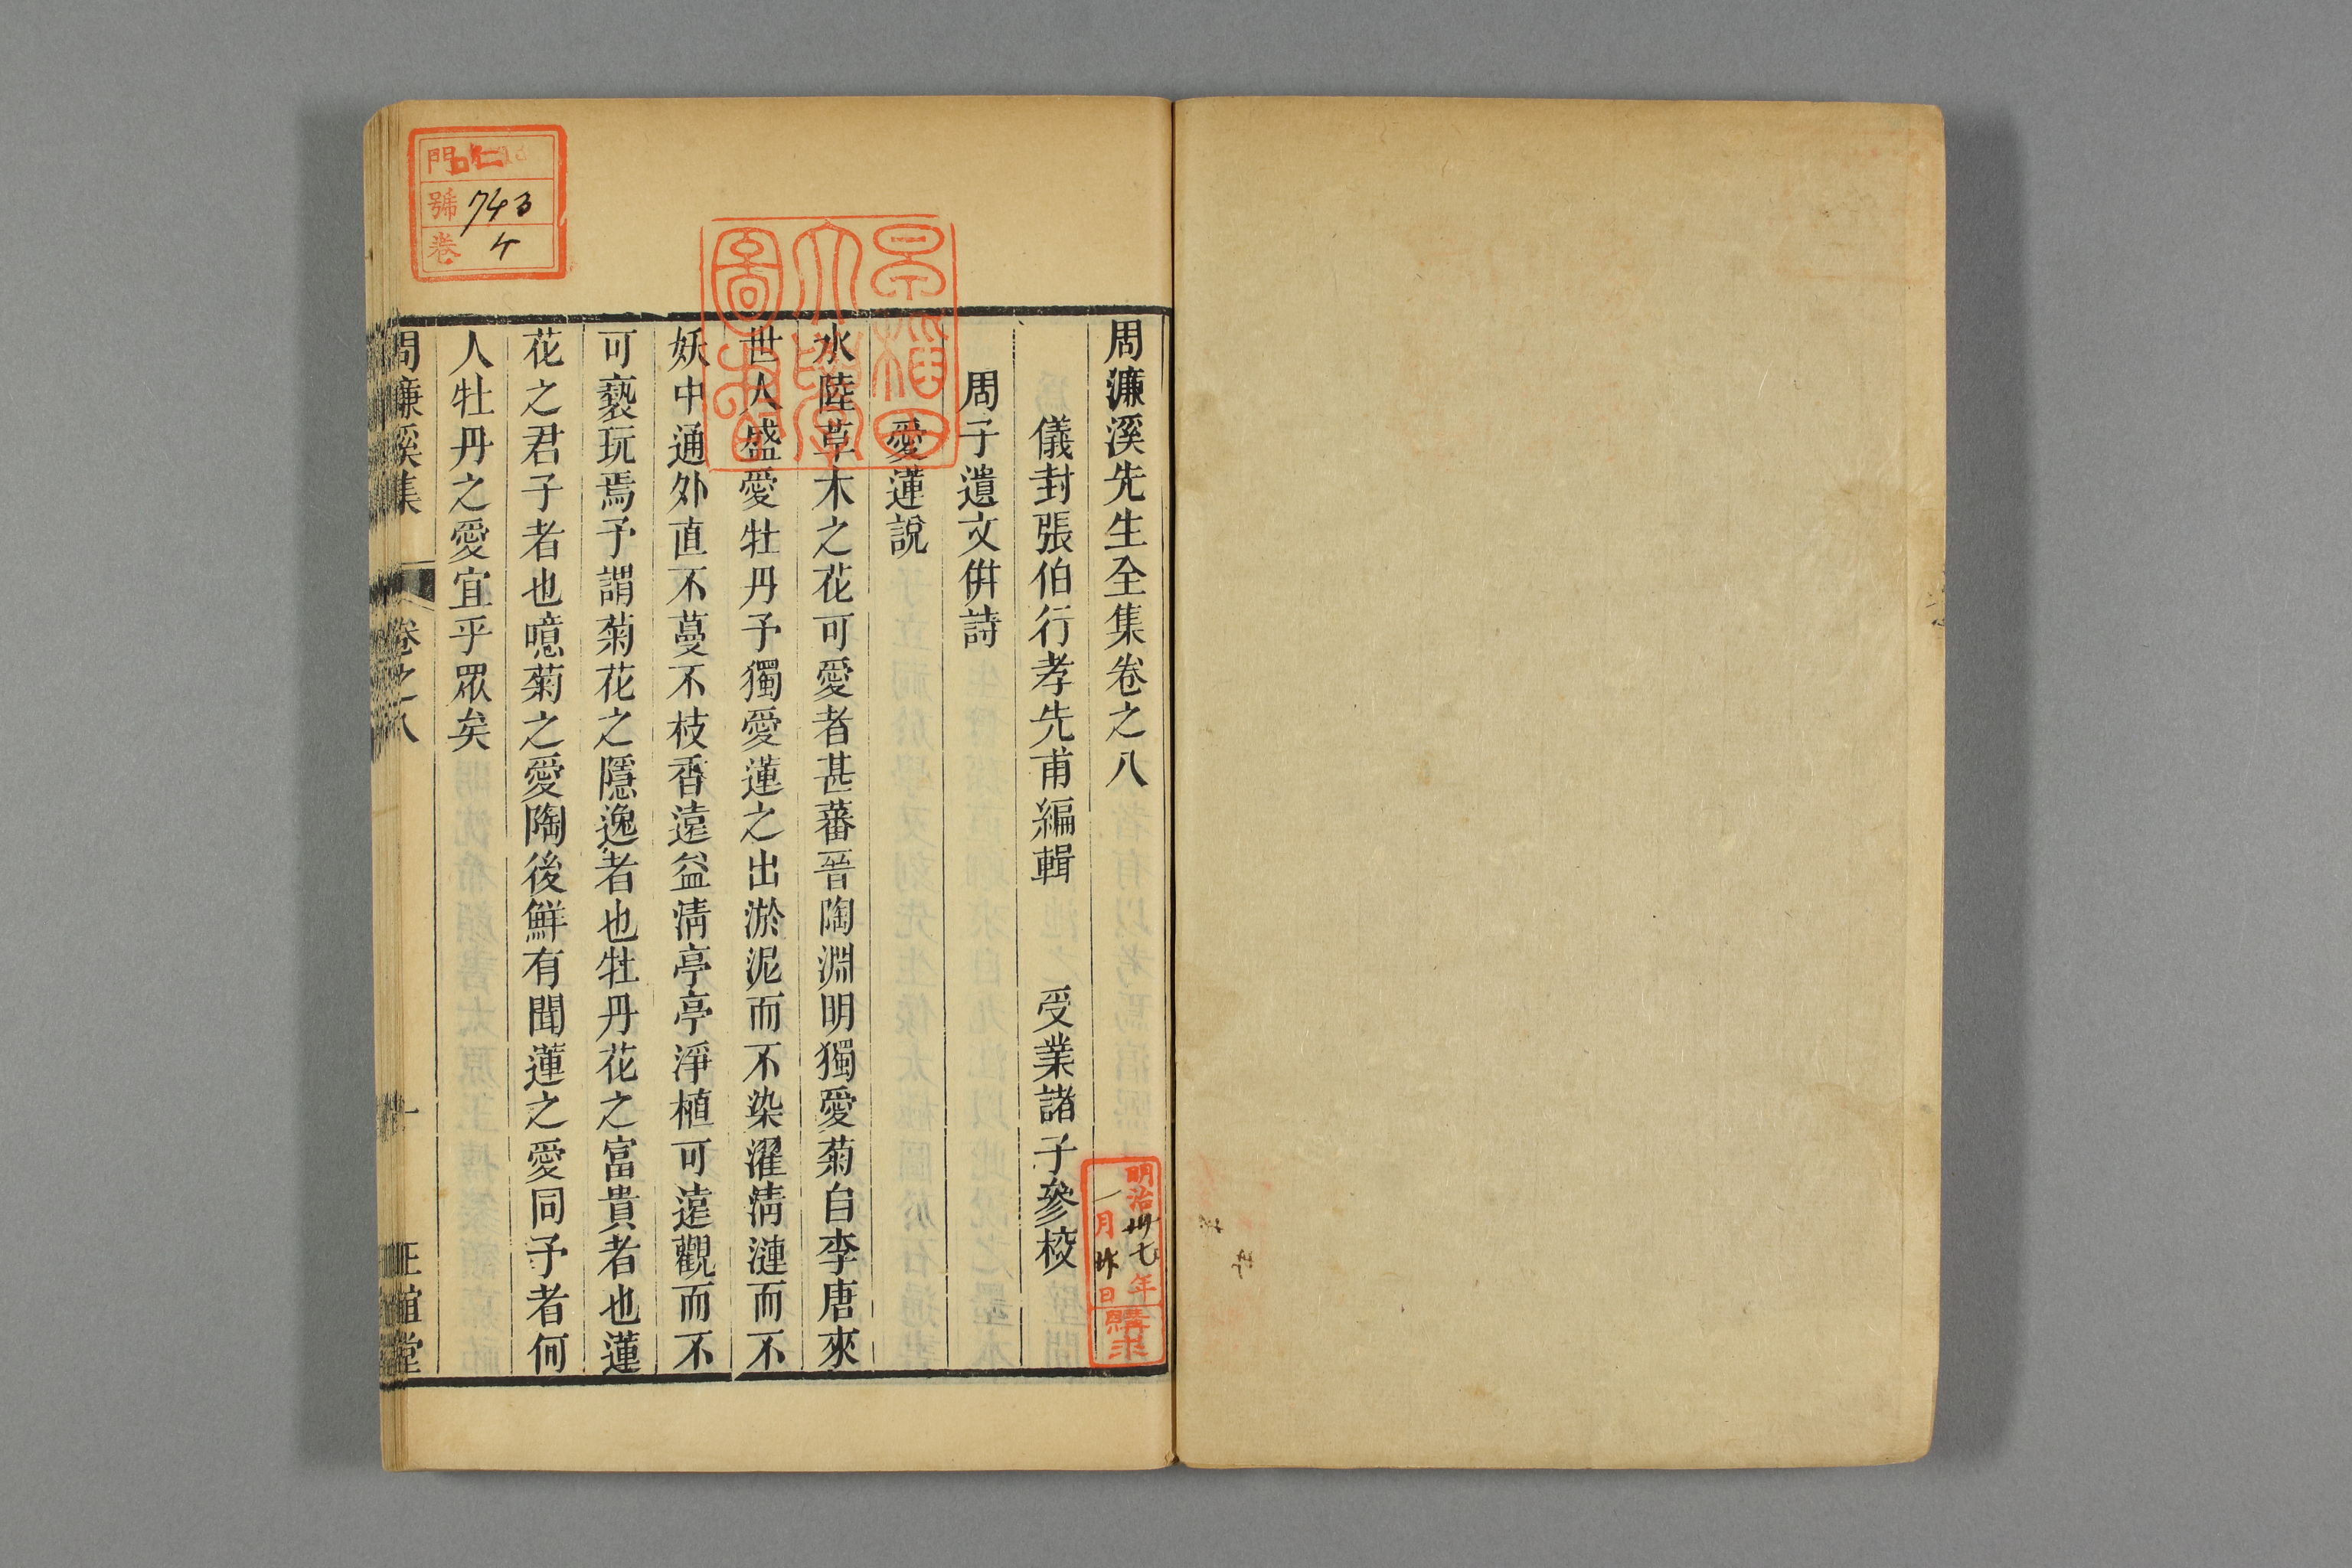 周濂溪先生全集卷之八
儀封張伯行孝先甫編輯 受業諸子參校
周子遺文倂詩
愛蓮說
水陸草木之花可愛者甚蕃晉陶淵明獨愛菊自李唐來
世人盛愛牡丹予獨愛蓮之出淤泥而不染濯淸漣而不
妖中通外直不蔓不枝香遠益淸亭亭淨植可遠觀而不
可褻玩焉予謂菊花之隱逸者也牡丹花之富貴者也蓮
花之君子者也噫菊之愛陶後鮮有聞蓮之愛同予者何
人牡丹之愛宜乎眾矣
周濂溪集 卷之八 一 正誼堂
早稲田
大學
圖書
門 ロ仁
號 743
卷 4
明治卅七年
一月 日
購求